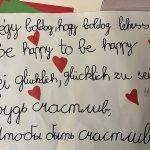 légy boldog, hogy boldog lehess
be happy to be happy
sei glücklich, glücklich zu sein
будь счастлив,
чтобы быть счастлив